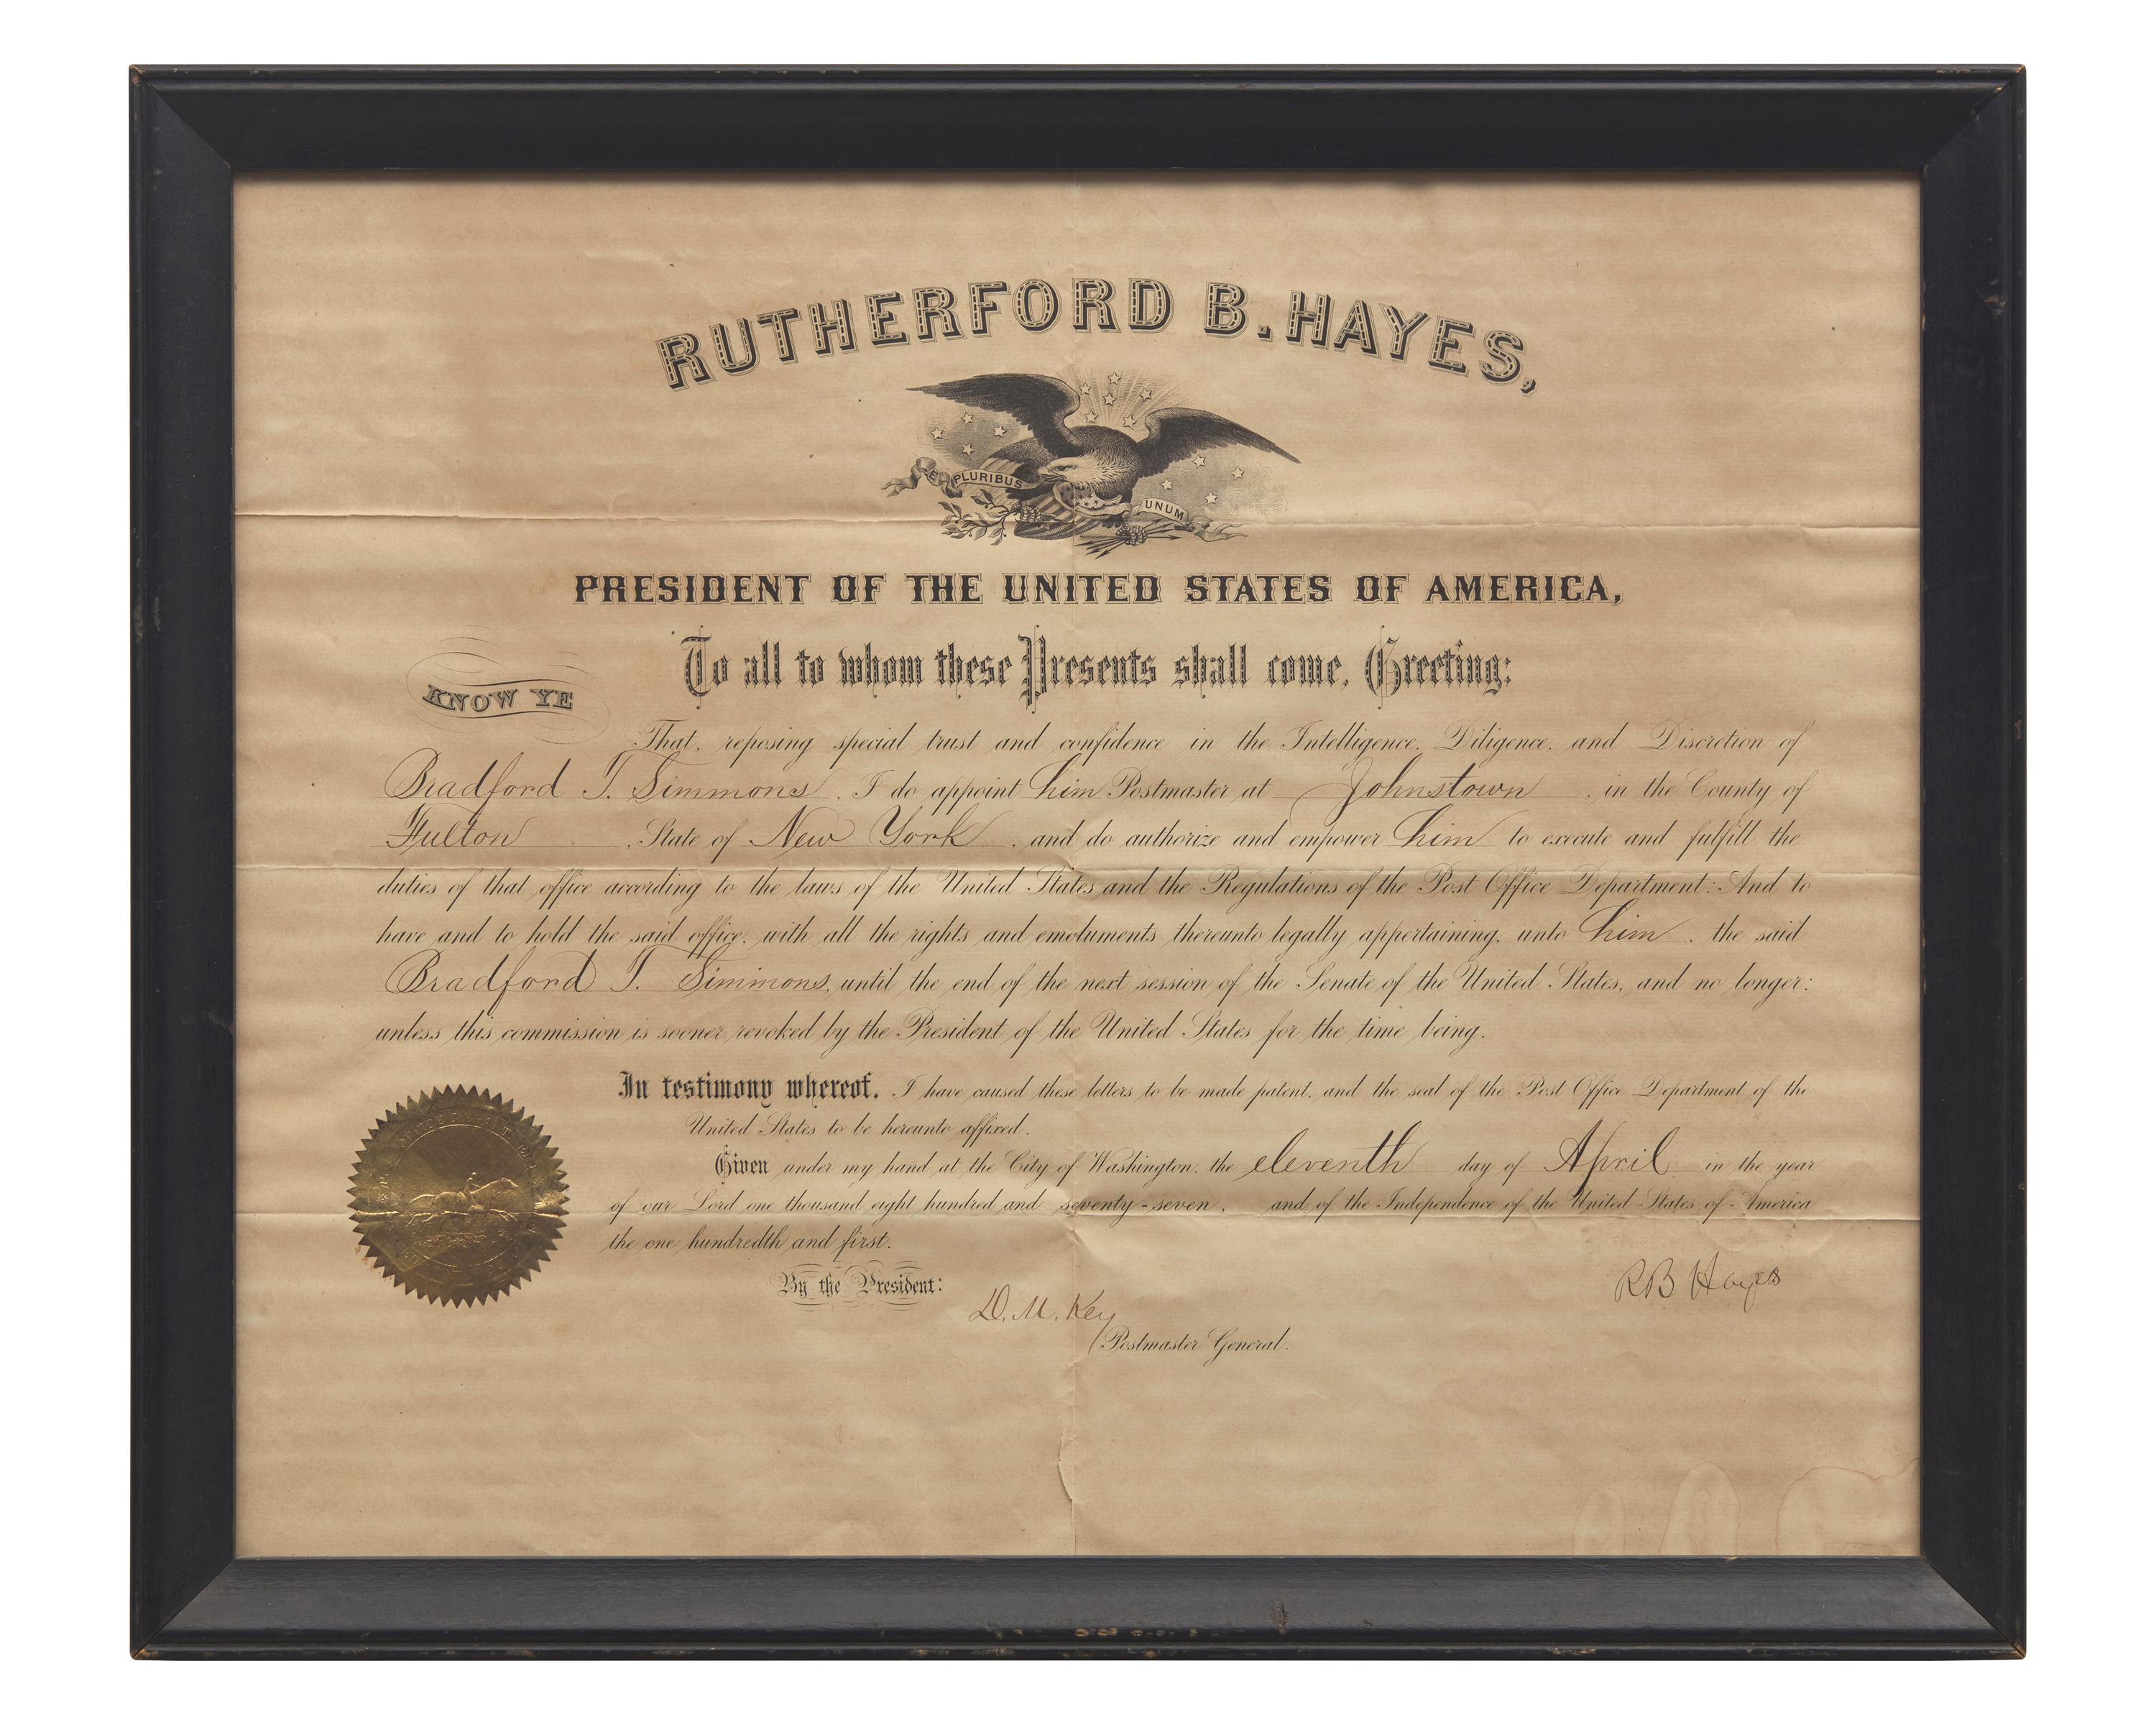 RUTHERFORD B. HAYES,
E PLURIBUS UNUM
PRESIDENT OF THE UNITED STATES OF AMERICA,
To all to whom these Presents shall come, Greeting:
KNOW YE
That, reposing special trust and confidence in the Intelligence, Diligence, and Discretion of
Bradford T. Simmons, I do appoint him Postmaster at Johnstown, in the County of
Fulton, State of New York, and do authorize and empower him to execute and fulfill the
duties of that office according to the laws of the United States and the Regulations of the Post Office Department: And to
have and to hold the said office, with all the rights and emoluments thereunto legally appertaining, unto him, the said
Bradford T. Simmons, until the end of the next session of the Senate of the United States, and no longer;
unless this commission is sooner revoked by the President of the United States for the time being.
In testimony whereof, I have caused these letters to be made patent, and the seal of the Post Office Department of the
United States to be hereunto affixed.
Given under my hand, at the City of Washington, the eleventh day of April in the year
of our Lord one thousand eight hundred and seventy-seven, and of the Independence of the United States of America
the one hundredth and first.
By the President:
RB Hayes
D. M. Key
Postmaster General.